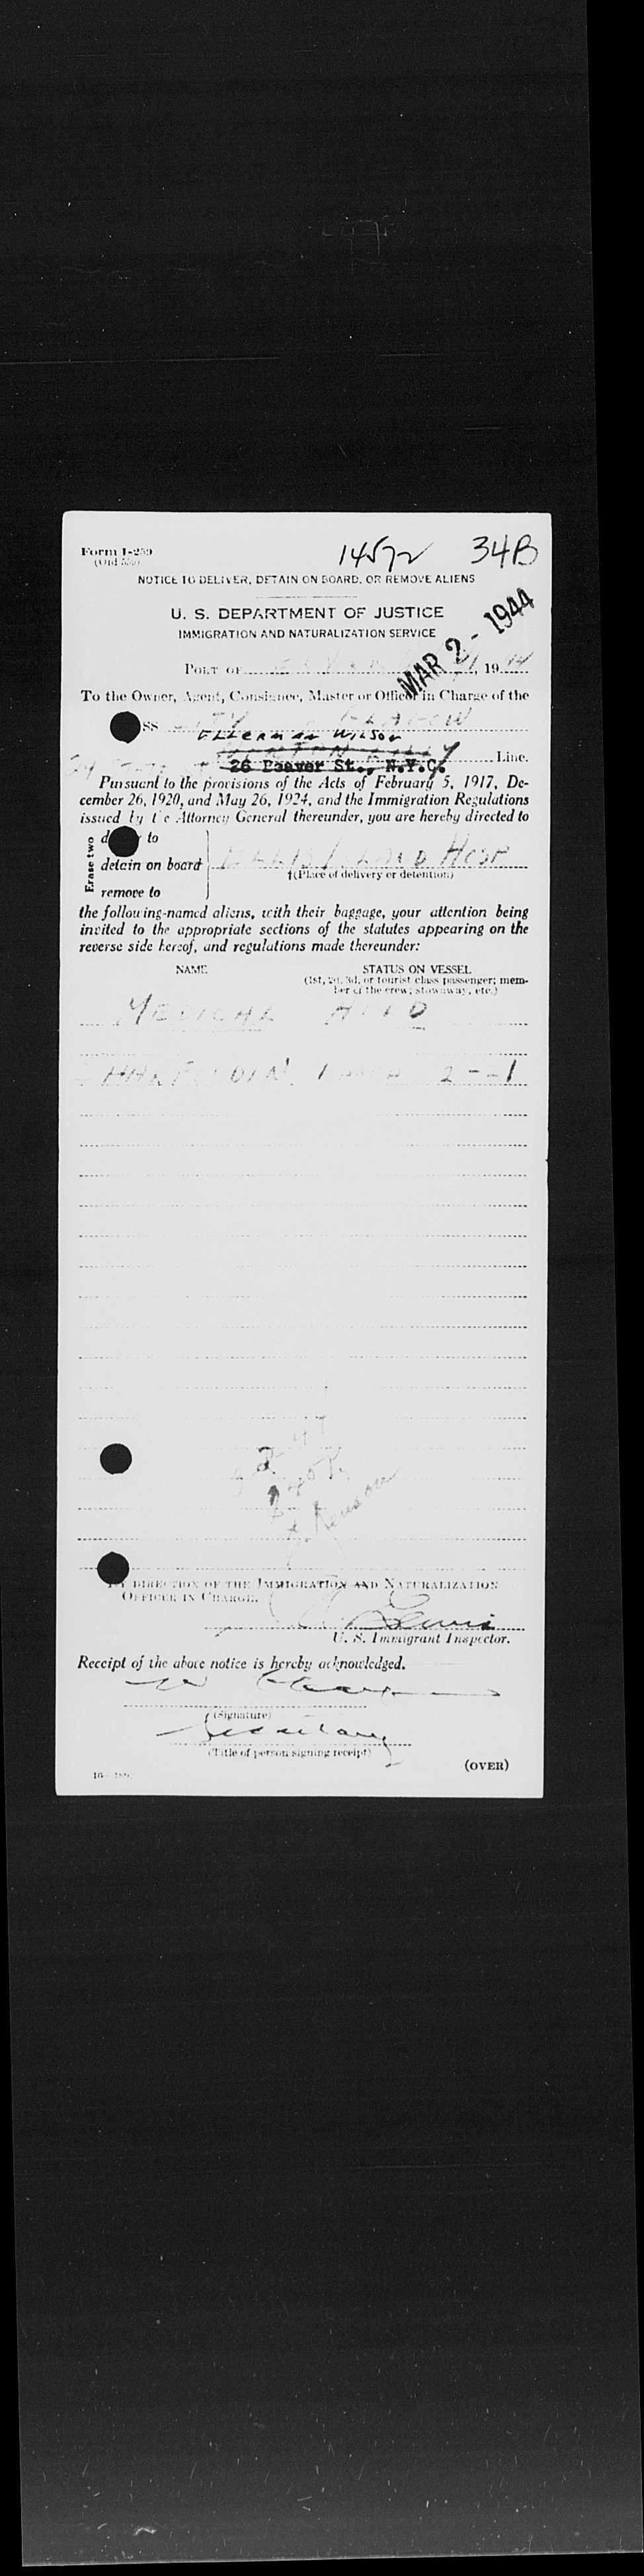 Form I-259
(Old 550)
14572 34B
NOTICE TO DELIVER, DETAIN ON BOARD, OR REMOVE ALIENS
U. S. DEPARTMENT OF JUSTICE
IMMIGRATION AND NATURALIZATION SERVICE
MAR 2 - 1944
PORT OF 19 44
To the Owner, Agent, Consignee, Master or Officer in Charge of the
SS
ELLERMAN WILSON
Line.
26 Beaver St., N.Y.C.
Pursuant to the provisions of the Acts of February 5, 1917, De-
cember 26, 1920, and May 26, 1924, and the Immigration Regulations
issued by the Attorney General thereunder, you are hereby directed to
Erase two
to
detain on board
ELLIS ISLAND HOSP
†(Place of delivery or detention)
remove to
the following-named aliens, with their baggage, your attention being
invited to the appropriate sections of the statutes appearing on the
reverse side hereof, and regulations made thereunder:
NAME STATUS ON VESSEL
(1st, 2d, 3d, or tourist class passenger; mem-
ber of the crew; stowaway, etc.)
MEDICAL
2 - - 1
BY DIRECTION OF THE IMMIGRATION AND NATURALIZATION
OFFICER IN CHARGE.
Lewis
U. S. Immigrant Inspector.
Receipt of the above notice is hereby acknowledged.
(Signature)
Secretary
(Title of person signing receipt)
(OVER)